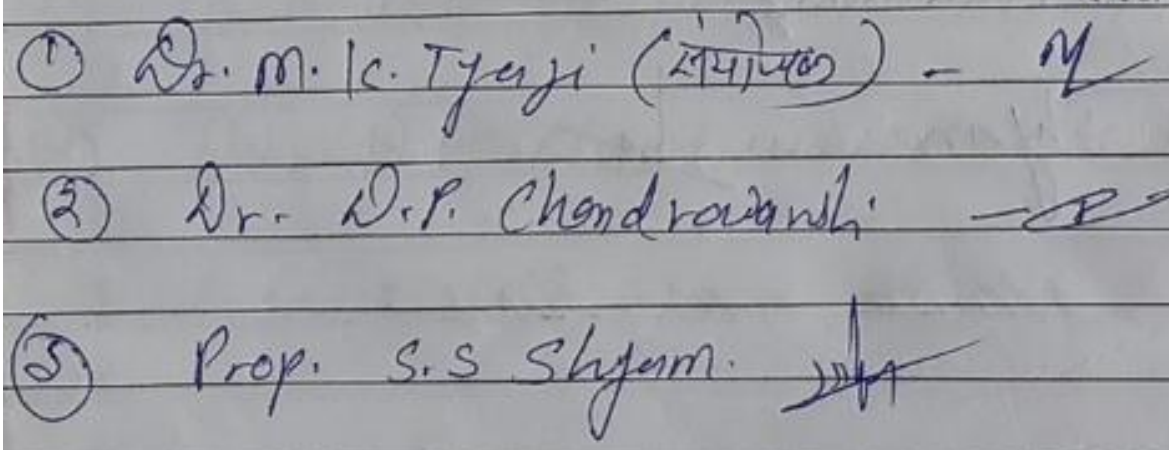 ① Dr. M. K. Tyagi (संयोजक) -
② Dr. D.P. Chandravanshi -
③ Prop. S.S Shyam.